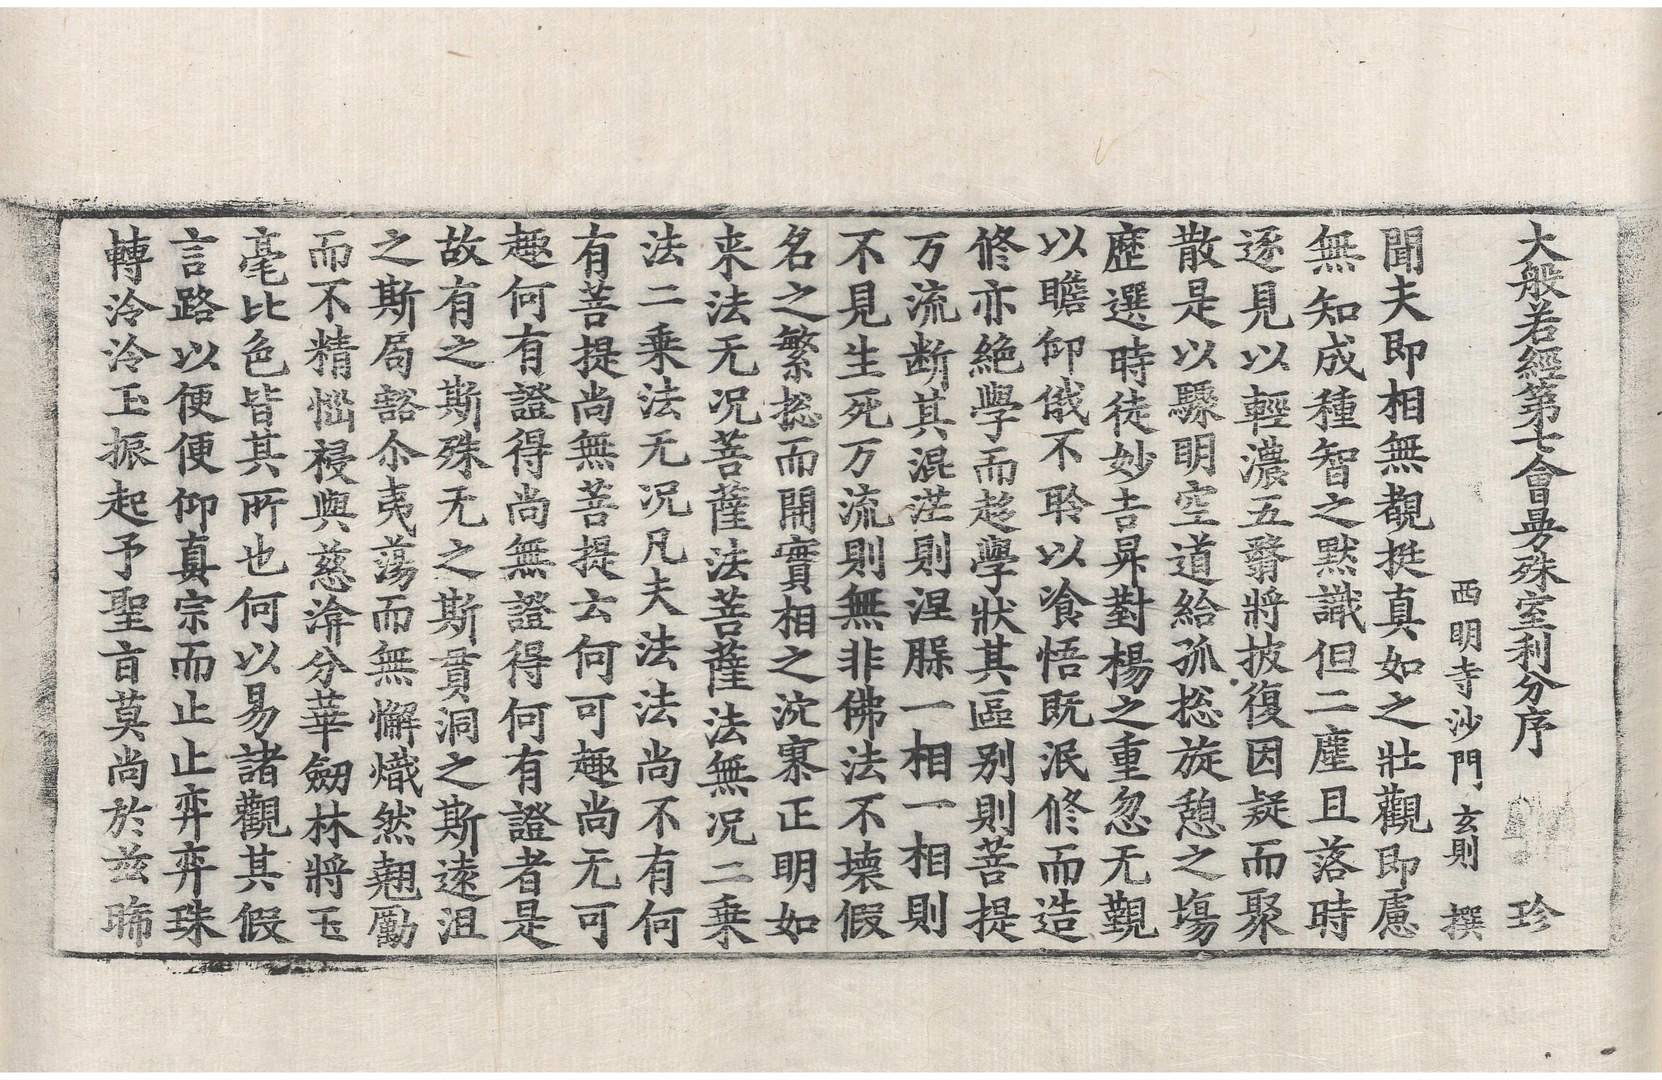 大般若經第七會曼殊室利分序 珍
西明寺沙門玄則 撰
聞夫即相無覩挺真如之壯觀即慮
無知成種智之默識但二塵且落時
逐見以輕濃五翳將披復因疑而聚
散是以驟明空道給孤揔旋憩之場
歷選時徒妙吉昇對楊之重忽无覲
以瞻仰俄不聆以飡悟既泯修而造
修亦絶學而趍學狀其區别則菩提
万流断其混茫則涅脲一相一相則
不見生死万流則無非佛法不壊假
名之繁捴而開實相之沉寥正明如
来法无况菩薩法菩薩法無况二乗
法二乗法无况凡夫法法尚不有何
有菩提尚無菩提云何可趣尚无可
趣何有證得尚無證得何有證者是
故有之斯殊无之斯貫洞之斯遠沮
之斯局豁尒夷蕩而無懈熾然翹勵
而不精惱祲與慈渰分華劒林將玉
毫比色皆其所也何以易諸觀其假
言路以便便仰真宗而止止弈弈珠
轉泠泠玉振起予聖旨莫尚於兹㫶